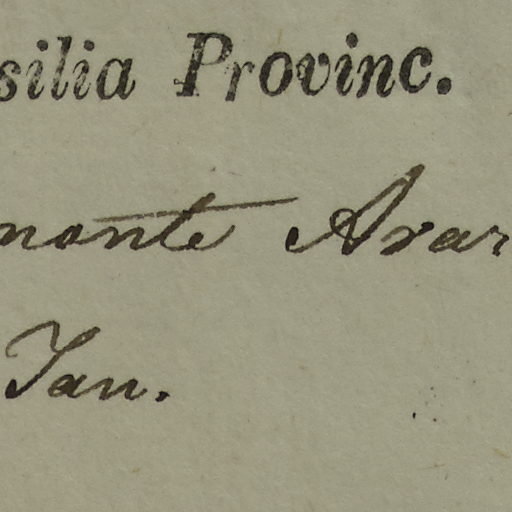 silia Provinc.
monte Arar
Jan.